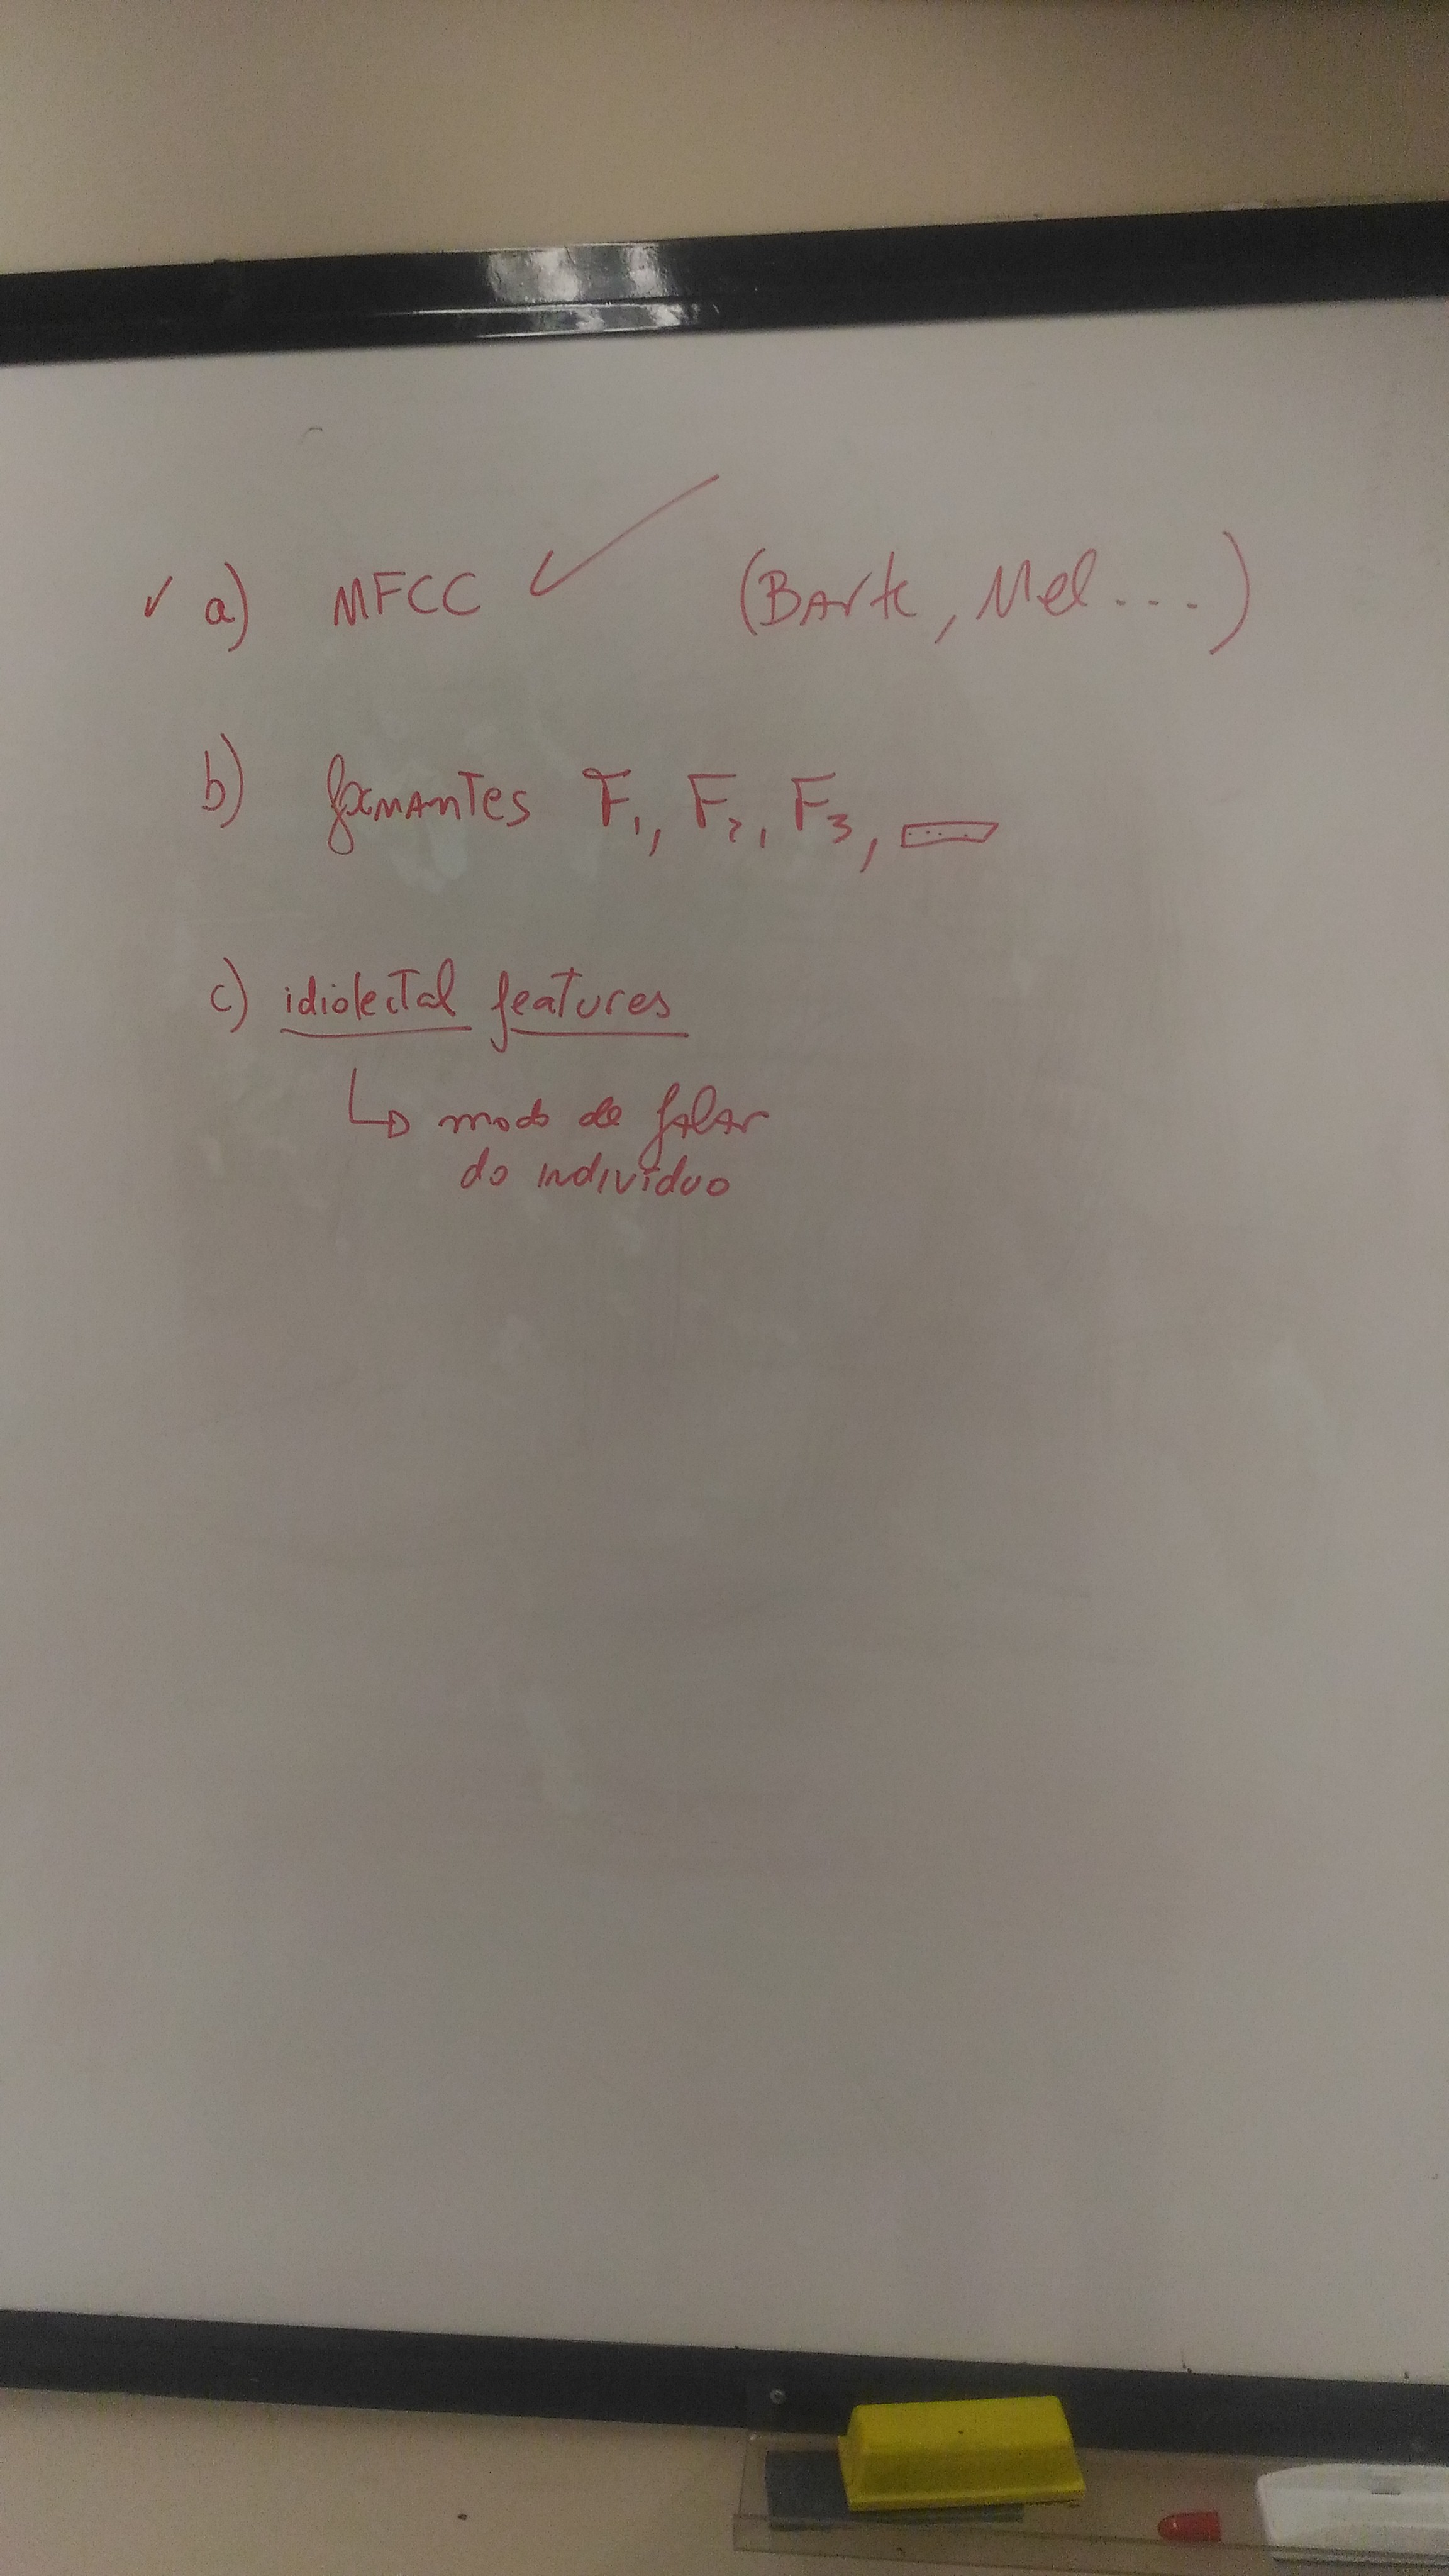 ✓ a) MFCC ✓ (BArk, Mel....)
b) formAnTes F₁, F₂, F₃, ....
c) idiolectal features
↳ modo de fAlAr
do indivíduo